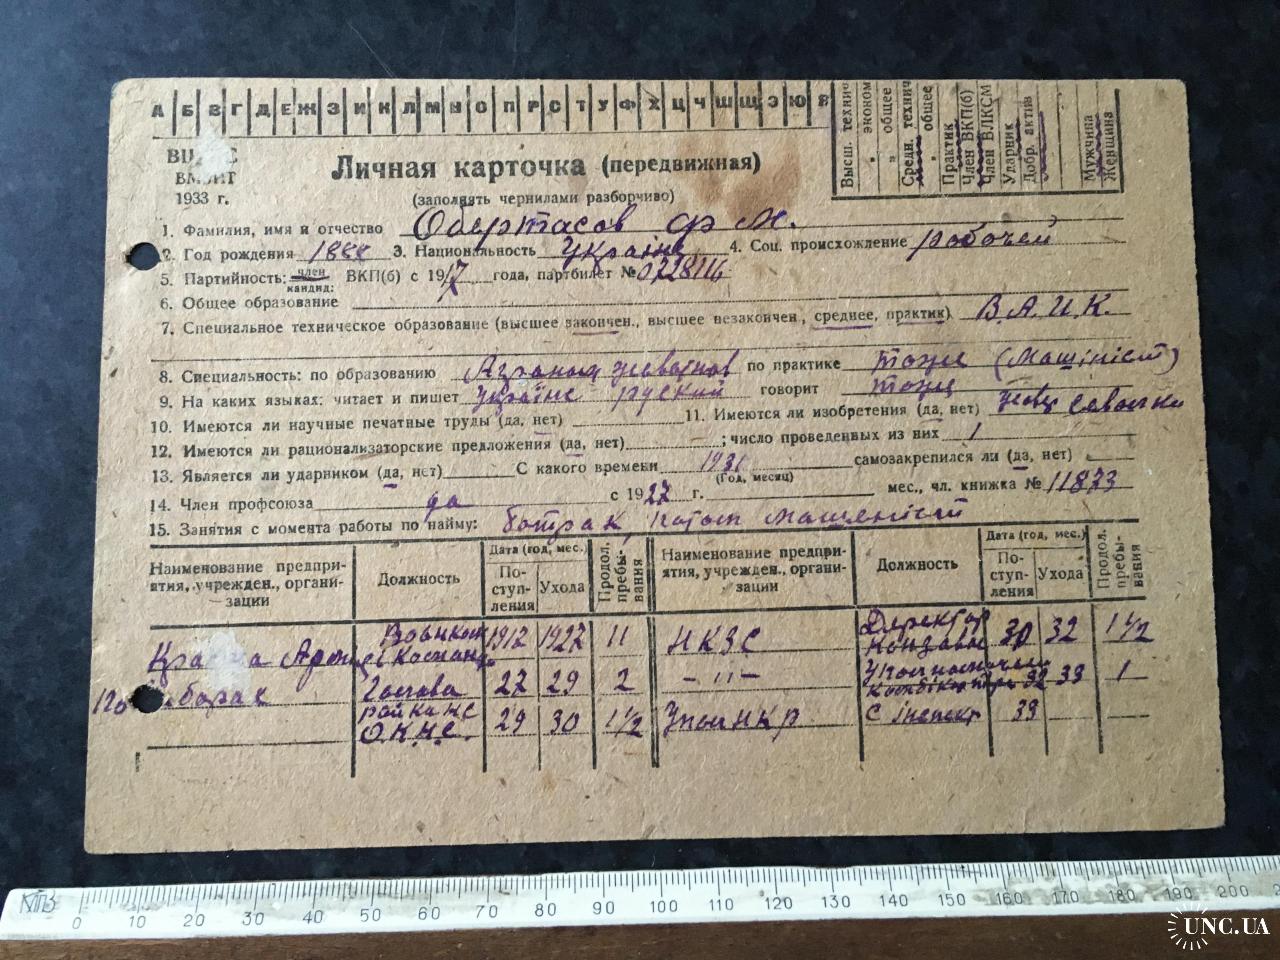 А Б В Г Д Е Ж З И К Л М Н О П Р С Т У Ф Х Ц Ч Ш Щ Э Ю Я
Высш. технич
" эконом
" общее
Средн. технич
" общее
Практик
Член ВКП(б)
Член ВЛКСМ
Ударник
Добр. актив
Мужчина
Женщина
1933 г.
Личная карточка (передвижная)
(заполнять чернилами разборчиво)
1. Фамилия, имя и отчество Обертасов Ф М.
2. Год рождения 1888 3. Национальность Україне 4. Соц. происхождение рабочей
5. Партийность: член кандид: ВКП(б) с 1917 года, партбилет № 0728116
6. Общее образование
7. Специальное техническое образование (высшее закончен., высшее незакончен, среднее, практик) В.А.И.К.
8. Специальность: по образованию по практике тоже (Машініст)
9. На каких языках: читает и пишет Україне руский говорит тоже
10. Имеются ли научные печатные труды (да, нет) 11. Имеются ли изобретения (да, нет)
12. Имеются ли рационализаторские предложения (да, нет) ; число проведенных из них 1
13. Является ли ударником (да, нет) С какого времени 1931 (год, месяц) самозакрепился ли (да, нет)
14. Член профсоюза да с 1927 г. мес., чл. книжка № 11873
15. Занятия с момента работы по найму: батрак, потом машеніст
Наименование предприятия, учрежден., организации Должность Дата (год, мес.) Поступления Ухода Продол. пребывания Наименование предприятия, учрежден., организации Должность Дата (год, мес.) Поступления Ухода Продол. пребывания
1912 1927 11 НКЗС Директор 30 32 1 1/2
Голова 27 29 2 - " - 32 33 1
О.К.К.С. 29 30 1 1/2 с інспект 33
0 10 20 30 40 50 60 70 80 90 100 110 120 130 140 150 160 170 180 190 200 2
UNC.UA